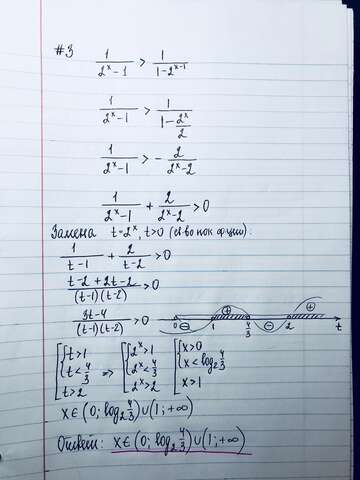 #3 1/(2^x - 1) > 1/(1 - 2^(x-1))
1/(2^x - 1) > 1/(1 - 2^x/2)
1/(2^x - 1) > - 2/(2^x - 2)
1/(2^x - 1) + 2/(2^x - 2) > 0
Замена t = 2^x, t > 0 (св во пок ф ции):
1/(t - 1) + 2/(t - 2) > 0
(t - 2 + 2t - 2)/((t-1)(t-2)) > 0
(3t - 4)/((t-1)(t-2)) > 0 0 ⊖ 1 + 4/3 ⊖ 2 + t
[ { t > 1 ; t < 4/3 ; t > 2 ⇒ [ { 2^x > 1 ; 2^x < 4/3 ; 2^x > 2 [ { x > 0 ; x < log_2 4/3 ; x > 1
x ∈ (0; log_2 4/3) ∪ (1; +∞)
Ответ: x ∈ (0; log_2 4/3) ∪ (1; +∞)